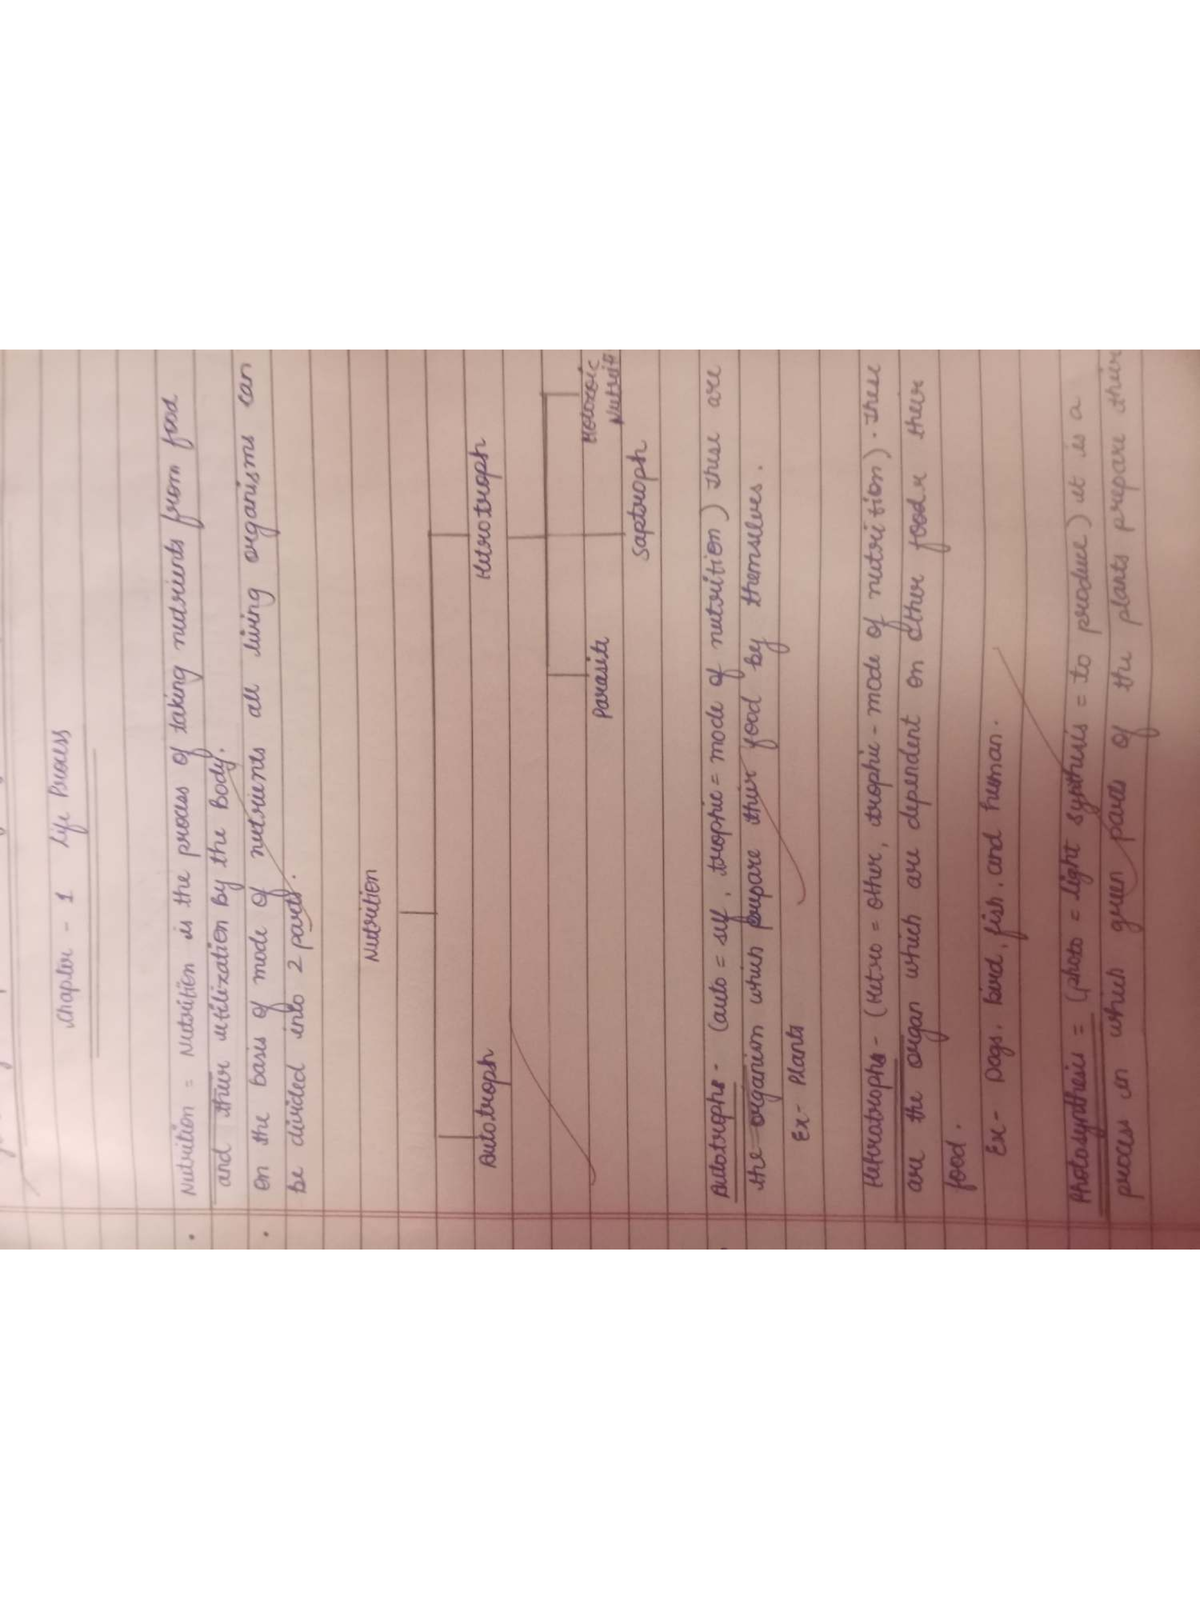 Chapter - 1 Life Process
• Nutrition = Nutrition is the process of taking nutrients from food
and thier utilization by the Body.
• On the basis of mode of nutrients all living organisms can
be divided into 2 parts.
Nutrition
Autotroph Hetrotroph
Parasite Holozoic
Nutrit
Saptroph
Autotrophs - (auto = self, trophic = mode of nutrition) these are
the organism which prepare thier food by themselves.
Ex - Plants
Heterotrophs - (Hetro = other, trophic - mode of nutrition). these
are the organ which are dependent on other food their
food.
Ex - Dogs, bird, fish, and human.
Photosynthesis = (photo = light synthesis = to produce) it is a
process in which green parts of the plants prepare thier